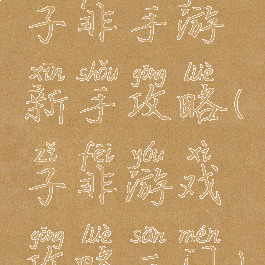 子非手游
xīn shǒu gōng lüè
新手攻略(
zǐ fēi yóu xì
子非游戏
gōng lüè sān mén